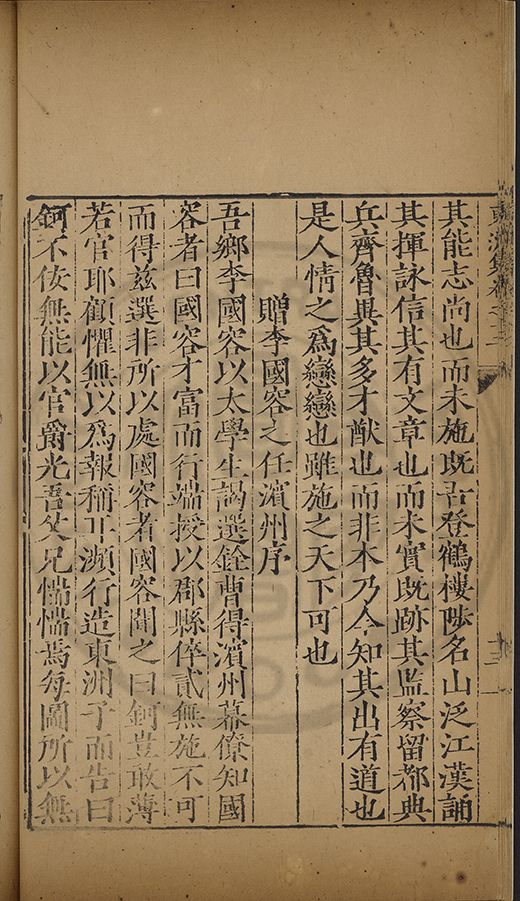 其能志尚也而未施既吉登鶴樓陟名山泛江漢誦
其揮詠信其有文章也而未實既跡其監察留都典
兵齊魯異其多才猷也而非本乃今知其出有道也
是人情之爲戀戀也雖施之天下可也
贈李國容之任濱州序
吾鄉李國容以太學生謁選銓曹得濱州幕僚知國
容者曰國容才富而行端授以郡縣倅貳無施不可
而得兹選非所以處國容者國容聞之曰鈳豈敢薄
若官耶顧懼無以爲報稱耳瀕行造東洲子而告曰
鈳不佞無能以官爵光吾父兄惴惴焉每圖所以無
東洲集卷之十二
十二